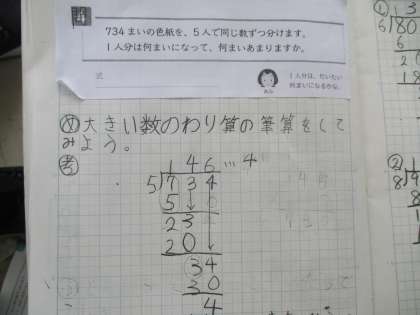 734まいの色紙を、5人で同じ数ずつ分けます。
1人分は何まいになって、何まいあまりますか。
式
1人分は、だいたい
何まいになるかな。
め 大きい数のわり算の筆算をして
みよう。
考
146…4
5)734
5
23
20
34
30
4
① 13
6)80
6
2
18
② 1
8)9
8
1